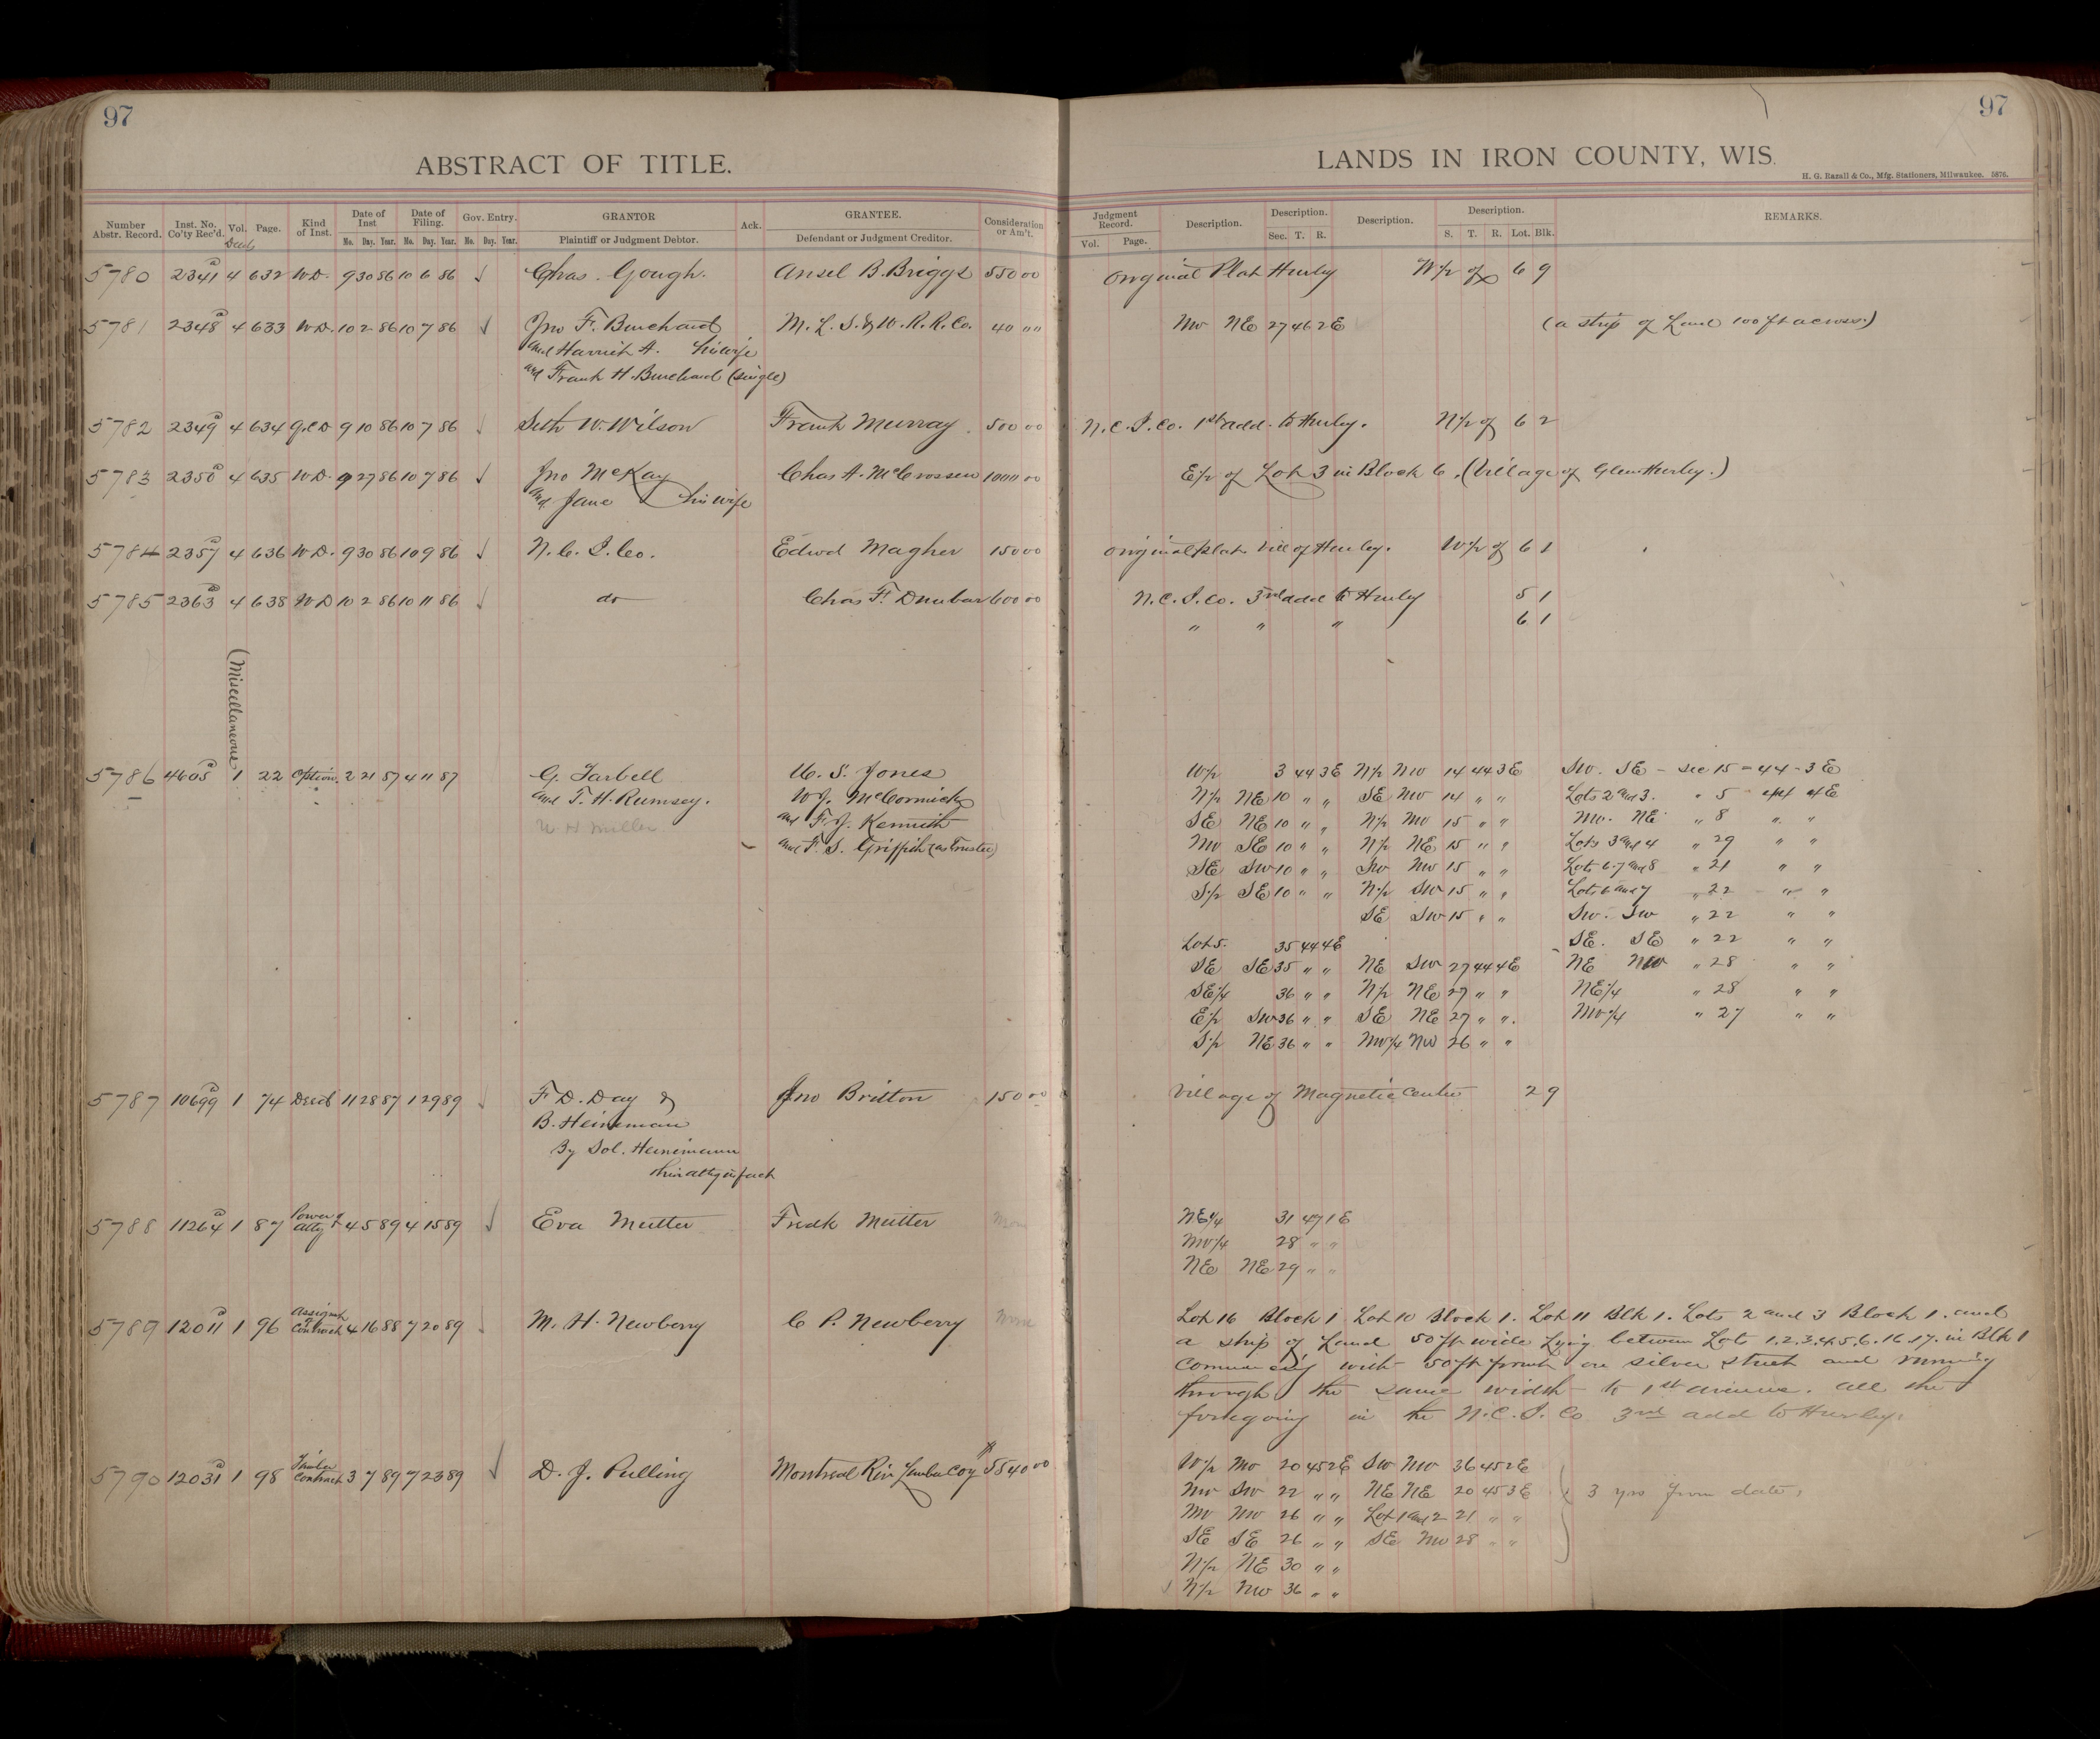 97
97
ABSTRACT OF TITLE.
LANDS IN IRON COUNTY, WIS.
H. G. Razall & Co., Mfg. Stationers, Milwaukee. 5876.
Number Abstr. Record. Inst. No. Co'ty Rec'd. Vol. Page. Kind of Inst. Date of Inst Date of Filing. Gov. Entry. GRANTOR Ack. GRANTEE. Consideration or Am't.
Deeds Mo. Day. Year. Mo. Day. Year. Mo. Day. Year. Plaintiff or Judgment Debtor. Defendant or Judgment Creditor.
Judgment Record. Description. Description. Description. Description. REMARKS.
Vol. Page. Sec. T. R. S. T. R. Lot. Blk.
5780 2341 4 632 W.D. 9 30 86 10 6 86 Chas. Gough. Ansel B. Briggs 550 00 Original Plat Hurly W½ of 6 9
5781 2348 4 633 W.D. 10 2 86 10 7 86 Jno F. Burchard M. L. S. & W. R. R. Co. 40 00 NW NE 27 46 2E (a strip of Land 100 ft across.)
and Harriet A. his wife
and Frank H. Burchard (single)
5782 2349 4 634 Q.C.D 9 10 86 10 7 86 Seth W. Wilson Frank Murray 500 00 N.C.I.Co. 1st add. to Hurley. N½ of 6 2
5783 2350 4 635 W.D. 9 27 86 10 7 86 Jno McKay Chas A. McCrossen 1000 00 E½ of Lot 3 in Block 6. (Village of Glen Hurley.)
and Jane his wife
5784 2357 4 636 W.D. 9 30 86 10 9 86 N. C. I. Co. Edwd Magher 150 00 Original Plat. Vill of Hurley. W½ of 6 1
5785 2363 4 638 W D 10 2 86 10 11 86 do Chas F. Dunbar 600 00 N.C.I.Co. 3rd add to Hurly 5 1
" " " 6 1
(Miscellaneous
5786 4605 1 22 Option. 2 21 87 4 11 87 G. Tarbell U. S. Jones W½ 3 44 3E N½ NW 14 44 3E SW. SE - Sec 15 - 44 - 3 E
and T. H. Rumsey. W J. McCormick N½ NE 10 " " SE NW 14 " " Lots 2 and 3. " 5
W H Miller and F. J. SE NE 10 " " N½ NW 15 " " NW. NE " 8 " "
and F. S. Griffith (as Trustee) NW SE 10 " " N½ NE 15 " " Lots 3 and 4 " 29 " "
SE SW 10 " " SW NW 15 " " Lots 6.7 and 8 " 21 " "
S½ SE 10 " " N½ SW 15 " " Lots 6 and 7 " 22 " "
SE SW 15 " " SW. SW " 22 " "
Lot 5. 35 44 4E SE. SE " 22 " "
SE SE 35 " " NE SW 27 44 4E NE NW " 28 " "
SE¼ 36 " " N½ NE 27 " " NE¼ " 28 " "
E½ SW 36 " " SE NE 27 " " NW¼ " 27 " "
S½ NE 36 " " NW¼ NW 26 " "
5787 10699 1 74 Deed 11 28 87 1 29 89 F. D. Day & Jno Britton 150 00 Village of Magnetic Center 2 9
B. Heineman
By Sol. Heinemann
their atty in fact
5788 11264 1 87 Power of atty 4 5 89 4 15 89 Eva Mutter Fredk Mutter None NE¼ 31 47 1E
NW¼ 28 " "
NE NE 29 " "
5789 12011 1 96 Assignmt of Contract 4 16 88 7 20 89 M. H. Newberry C P. Newberry None Lot 16 Block 1 Lot 10 Block 1. Lot 11 Blk 1. Lots 2 and 3 Block 1. and
a strip of Land 50 ft wide Lying between Lot 1.2.3.4.5.6.16.17. in Blk 1
Commencing with 50 ft front on Silver Street and running
through the same width to 1st avenue. all the
foregoing in the N.C.I. Co 3rd add to Hurley.
5790 12031 1 98 Timber Contract 3 7 89 7 23 89 D. J. Pulling Montreal Riv Lumber Coy $5540 00 W½ NW 20 45 2E SW NW 36 45 2E
NW SW 22 " " NE NE 20 45 3E 3 yrs from date.
NW NW 26 " " Lot 1 and 2 21 " "
SE SE 26 " " SE NW 28 " "
N½ NE 30 " "
N½ NW 36 " "